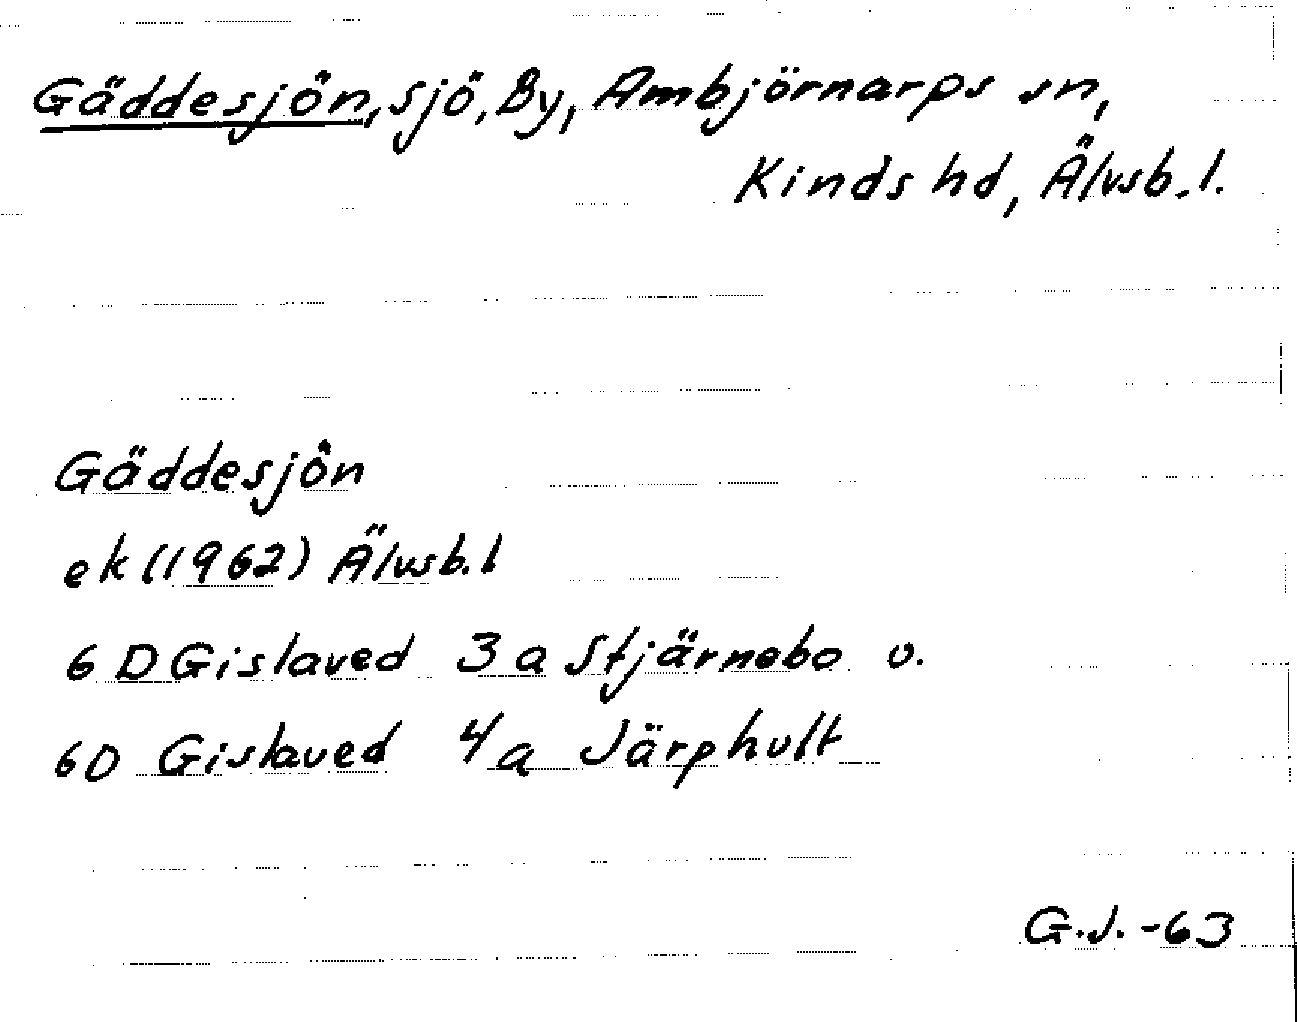 Gäddesjön, sjö, By, Ambjörnarps sn,
Kinds hd, Älvsb.l.
Gäddesjön
ek (1962) Älvsb.l
6 D Gislaved 3 a Stjärnebo v.
6D Gislaved 4 a Järphult
G.J. -63